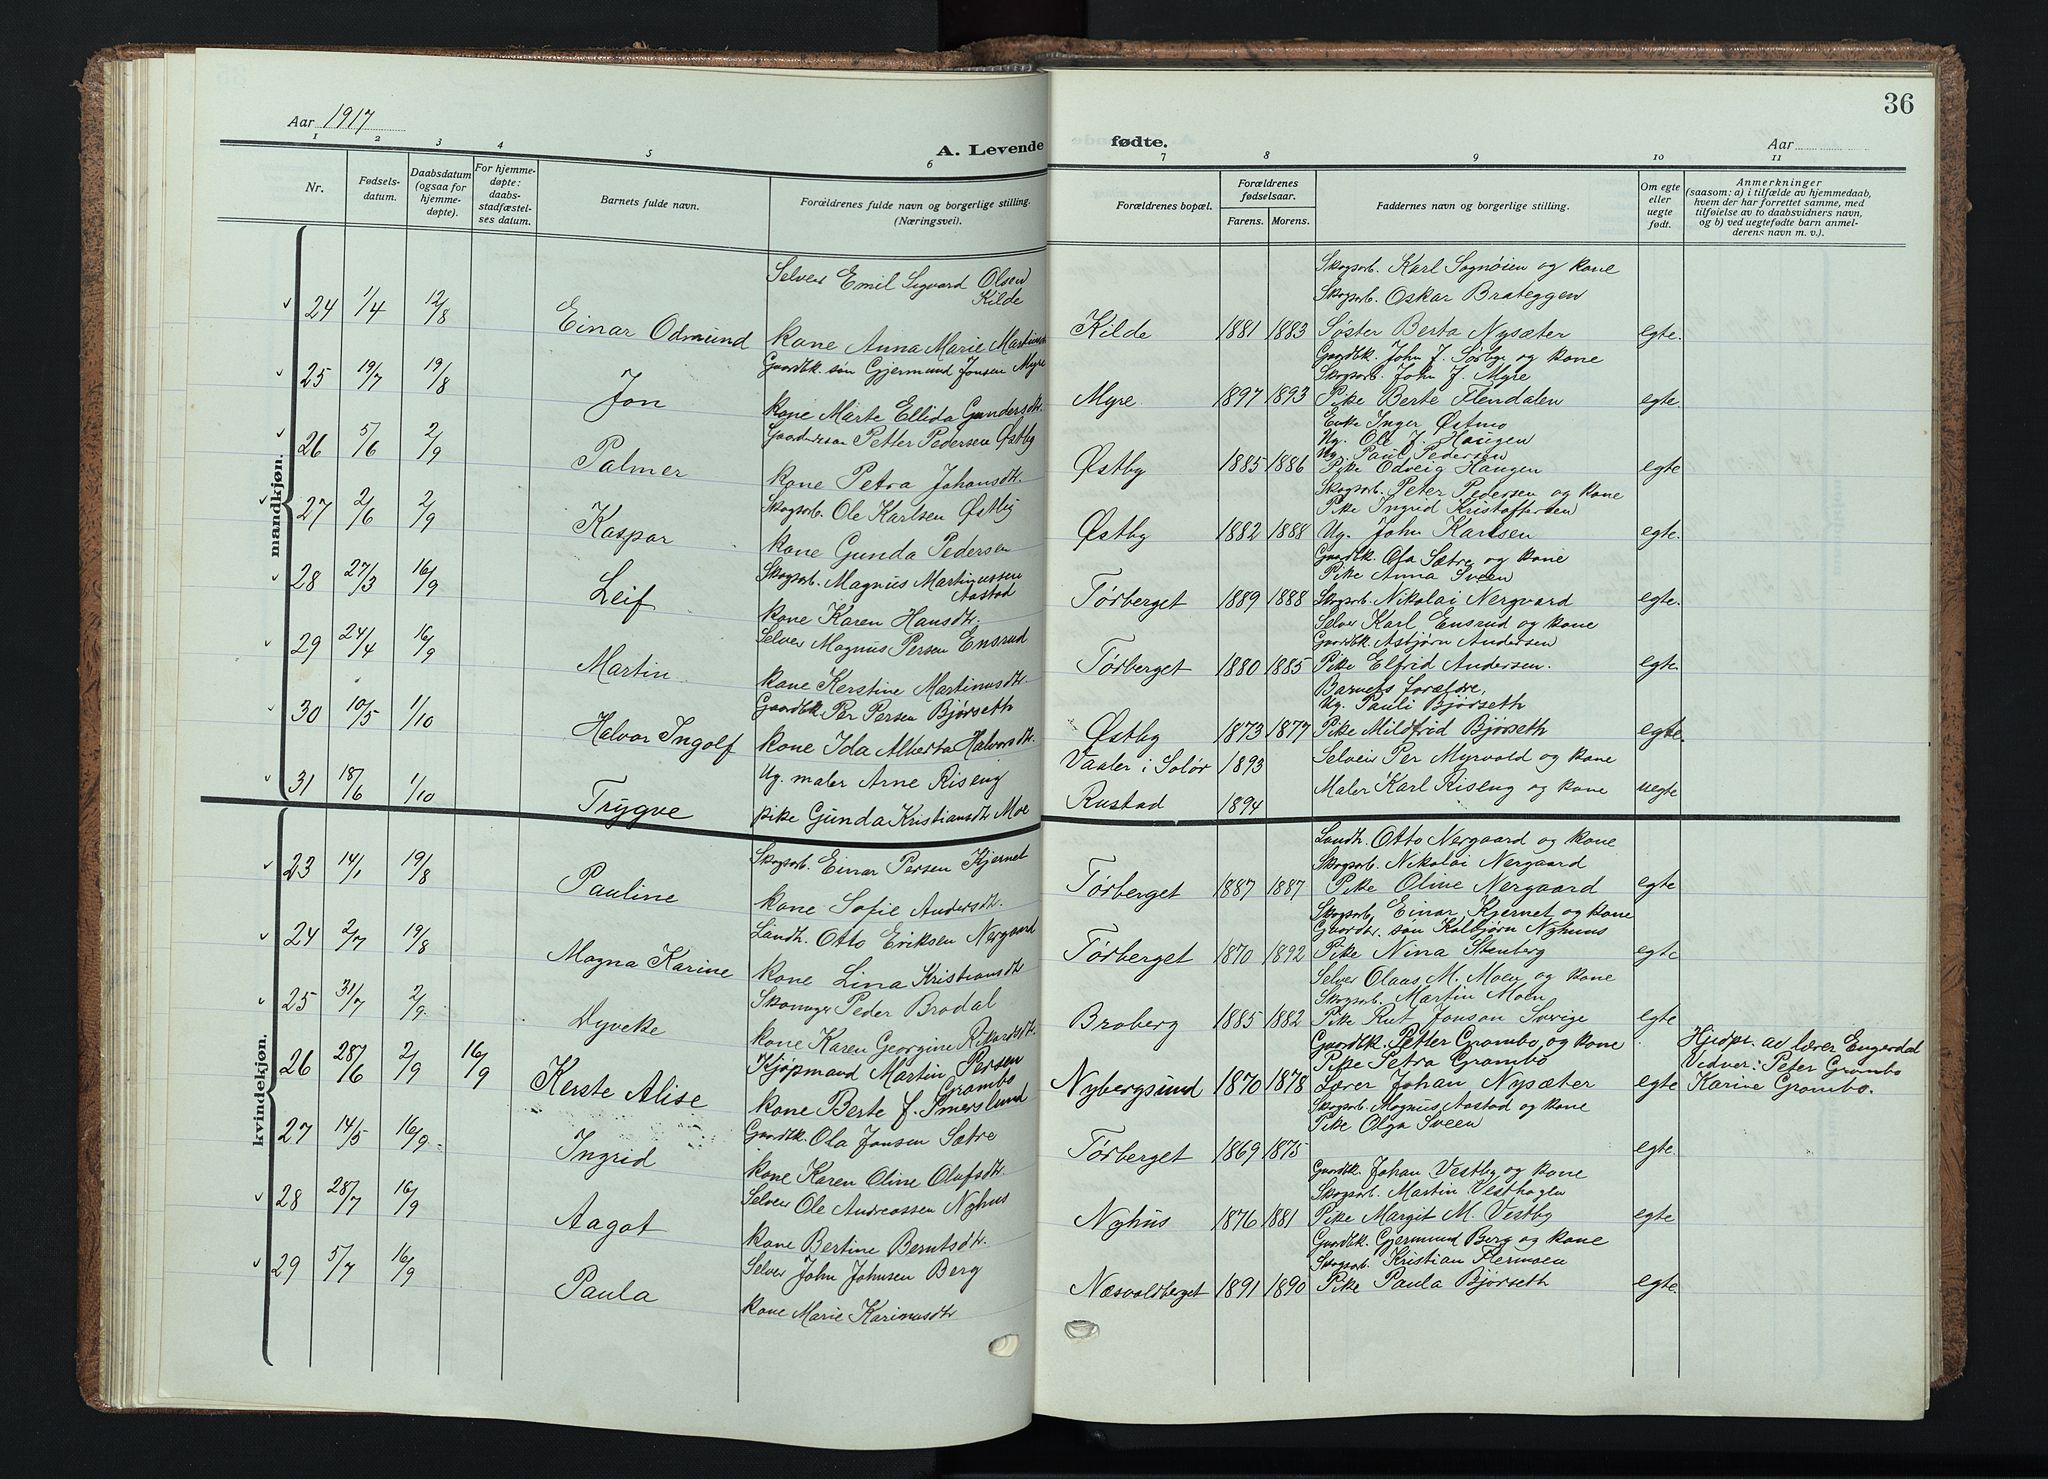 36
Aar 1917
Aar
A. Levende fødte.
1 2 3 4 5 6 7 8 9 10 11
Nr.
Fødselsdatum.
Daabsdatum (ogsaa for hjemmedøpte).
For hjemmedøpte: daabsstadfæstelses datum.
Barnets fulde navn.
Forældrenes fulde navn og borgerlige stilling. (Næringsvei).
Forældrenes bopæl.
Forældrenes fødselsaar.
Farens. Morens.
Faddernes navn og borgerlige stilling.
Om egte eller uegte født.
Anmerkninger
(saasom: a) i tilfælde av hjemmedaab,
hvem der har forrettet samme, med
tilføielse av to daabsvidners navn,
og b) ved uegtefødte barn anmel-
derens navn m. v.).
mandkjøn.
24 1/4 12/8 Einar Odmund
Selveier Emil Sigvard Olsen
Kilde
kone Anna Marie Martinusdtr.
Kilde 1881 1883
Skogsarb. Karl Sognøien og kone
Skogsarb. Oskar Brateggen
Søster Berta Nysæter
egte.
25 19/7 19/8 Jon
Gaardbk. søn Gjermund Jonsen Myre
kone Marte Ellida Gundersdtr.
Myre 1897 1893
Gaardbk. John J. Sørby og kone
Skogsarb. John J. Myre
Pike Berte Flendalen
egte.
26 5/6 2/9 Palmer
Petter Pedersen Østby
kone Petra Johansdtr.
Østby 1885 1886
Enke Inger Østmo
Ug. Ole J. Haugen
Ug. Paul Pedersen
Pike Odveig Haugen
egte
27 2/6 2/9 Kaspar
Skogsarb. Ole Karlsen Østby
kone Gunda Pedersen
Østby 1882 1888
Skogsarb. Peter Pedersen og kone
Pike Ingrid Kristoffersen
Ug. John Karlsen
egte.
28 27/3 16/9 Leif
Skogsarb. Magnus Martinussen
Aastad
kone Karen Hansdtr.
Tørberget 1889 1888
Gaardbk. Ola Sætre og kone
Pike Anna Sveen
Skogsarb. Nikolai Nergaard
egte.
29 24/4 16/9 Martin
Selveier Magnus Persen Ensrud
kone Kerstine Martinusdtr.
Tørberget 1880 1885
Selveier Karl Ensrud og kone
Gaardbk. Asbjørn Andersen
Pike Elfrid Andersen.
egte.
30 10/5 1/10 Halvor Ingolf
Gaardbk. Per Persen Bjørseth
kone Ida Alberta Halvorsdtr.
Østby 1873 1877
Barnets forældre,
Ug. Pauli Bjørseth
Pike Mildfrid Bjørseth
egte.
31 18/6 1/10 Trygve
Ug. maler Arne Riseng
pike Gunda Kristiansdtr Moe
Vaaler i Solør 1893
Rustad 1894
Selveier Per Myrvold og kone
Maler Karl Riseng og kone
uegte
kvindekjøn.
23 14/1 19/8 Pauline
Skogsarb. Einar Persen Kjernet
kone Sofie Andersdtr.
Tørberget 1887 1887
Landh. Otto Nergaard og kone
Skogsarb. Nikolai Nergaard
Pike Oline Nergaard
egte
24 2/7 19/8 Magna Karine
Landh. Otto Eriksen Nergaard
kone Lina Kristiansdtr
Tørberget 1870 1892
Skogsarb. Einar Kjernet og kone
Gaardbr. søn Kolbjørn Nyhuus
Pike Nina Stenberg
egte
25 31/7 2/9 Dyveke
Skomager Peder Brodal
kone Karen Georgine Rikardsdtr.
Broberg 1885 1882
Selveier Olaus M. Moen og kone
Skogsarb. Martin Moen
Pike Rut Jonson Sverige
egte
26 28/6 2/9 16/9 Kerste Alise
Kjøpmand Martin Persen
Grambo
kone Berte f. Smerslund
Nybergsund 1870 1878
Gaardbk. Petter Grambo og kone
Pike Petra Grambo
Lærer Johan Nysæter
egte
Hjdpt. av lærer Engerdal
Vidner: Peter Grambo
Karine Grambo.
27 14/5 16/9 Ingrid
Gaardbk. Ola Jonsen Sætre
kone Karen Oline Olufsdtr.
Tørberget 1869 1875
Skogsarb. Magnus Aastad og kone
Pike Olga Sveen
egte
28 28/7 16/9 Aagot
Selveier Ole Andreassen Nyhus
kone Bertine Berntsdtr.
Nyhus 1876 1881
Gaardbk. Johan Vestby og kone
Skogsarb. Martin Vesthagen
Pike Margit M. Vestby
egte
29 5/7 16/9 Paula
Selveier John Johnsen Berg
kone Marie Karinusdtr
Næsvoldberget 1891 1890
Gaardbk. Gjermund Berg og kone
Skogsarb. Kristian Flermoen
Pike Paula Bjørseth
egte.